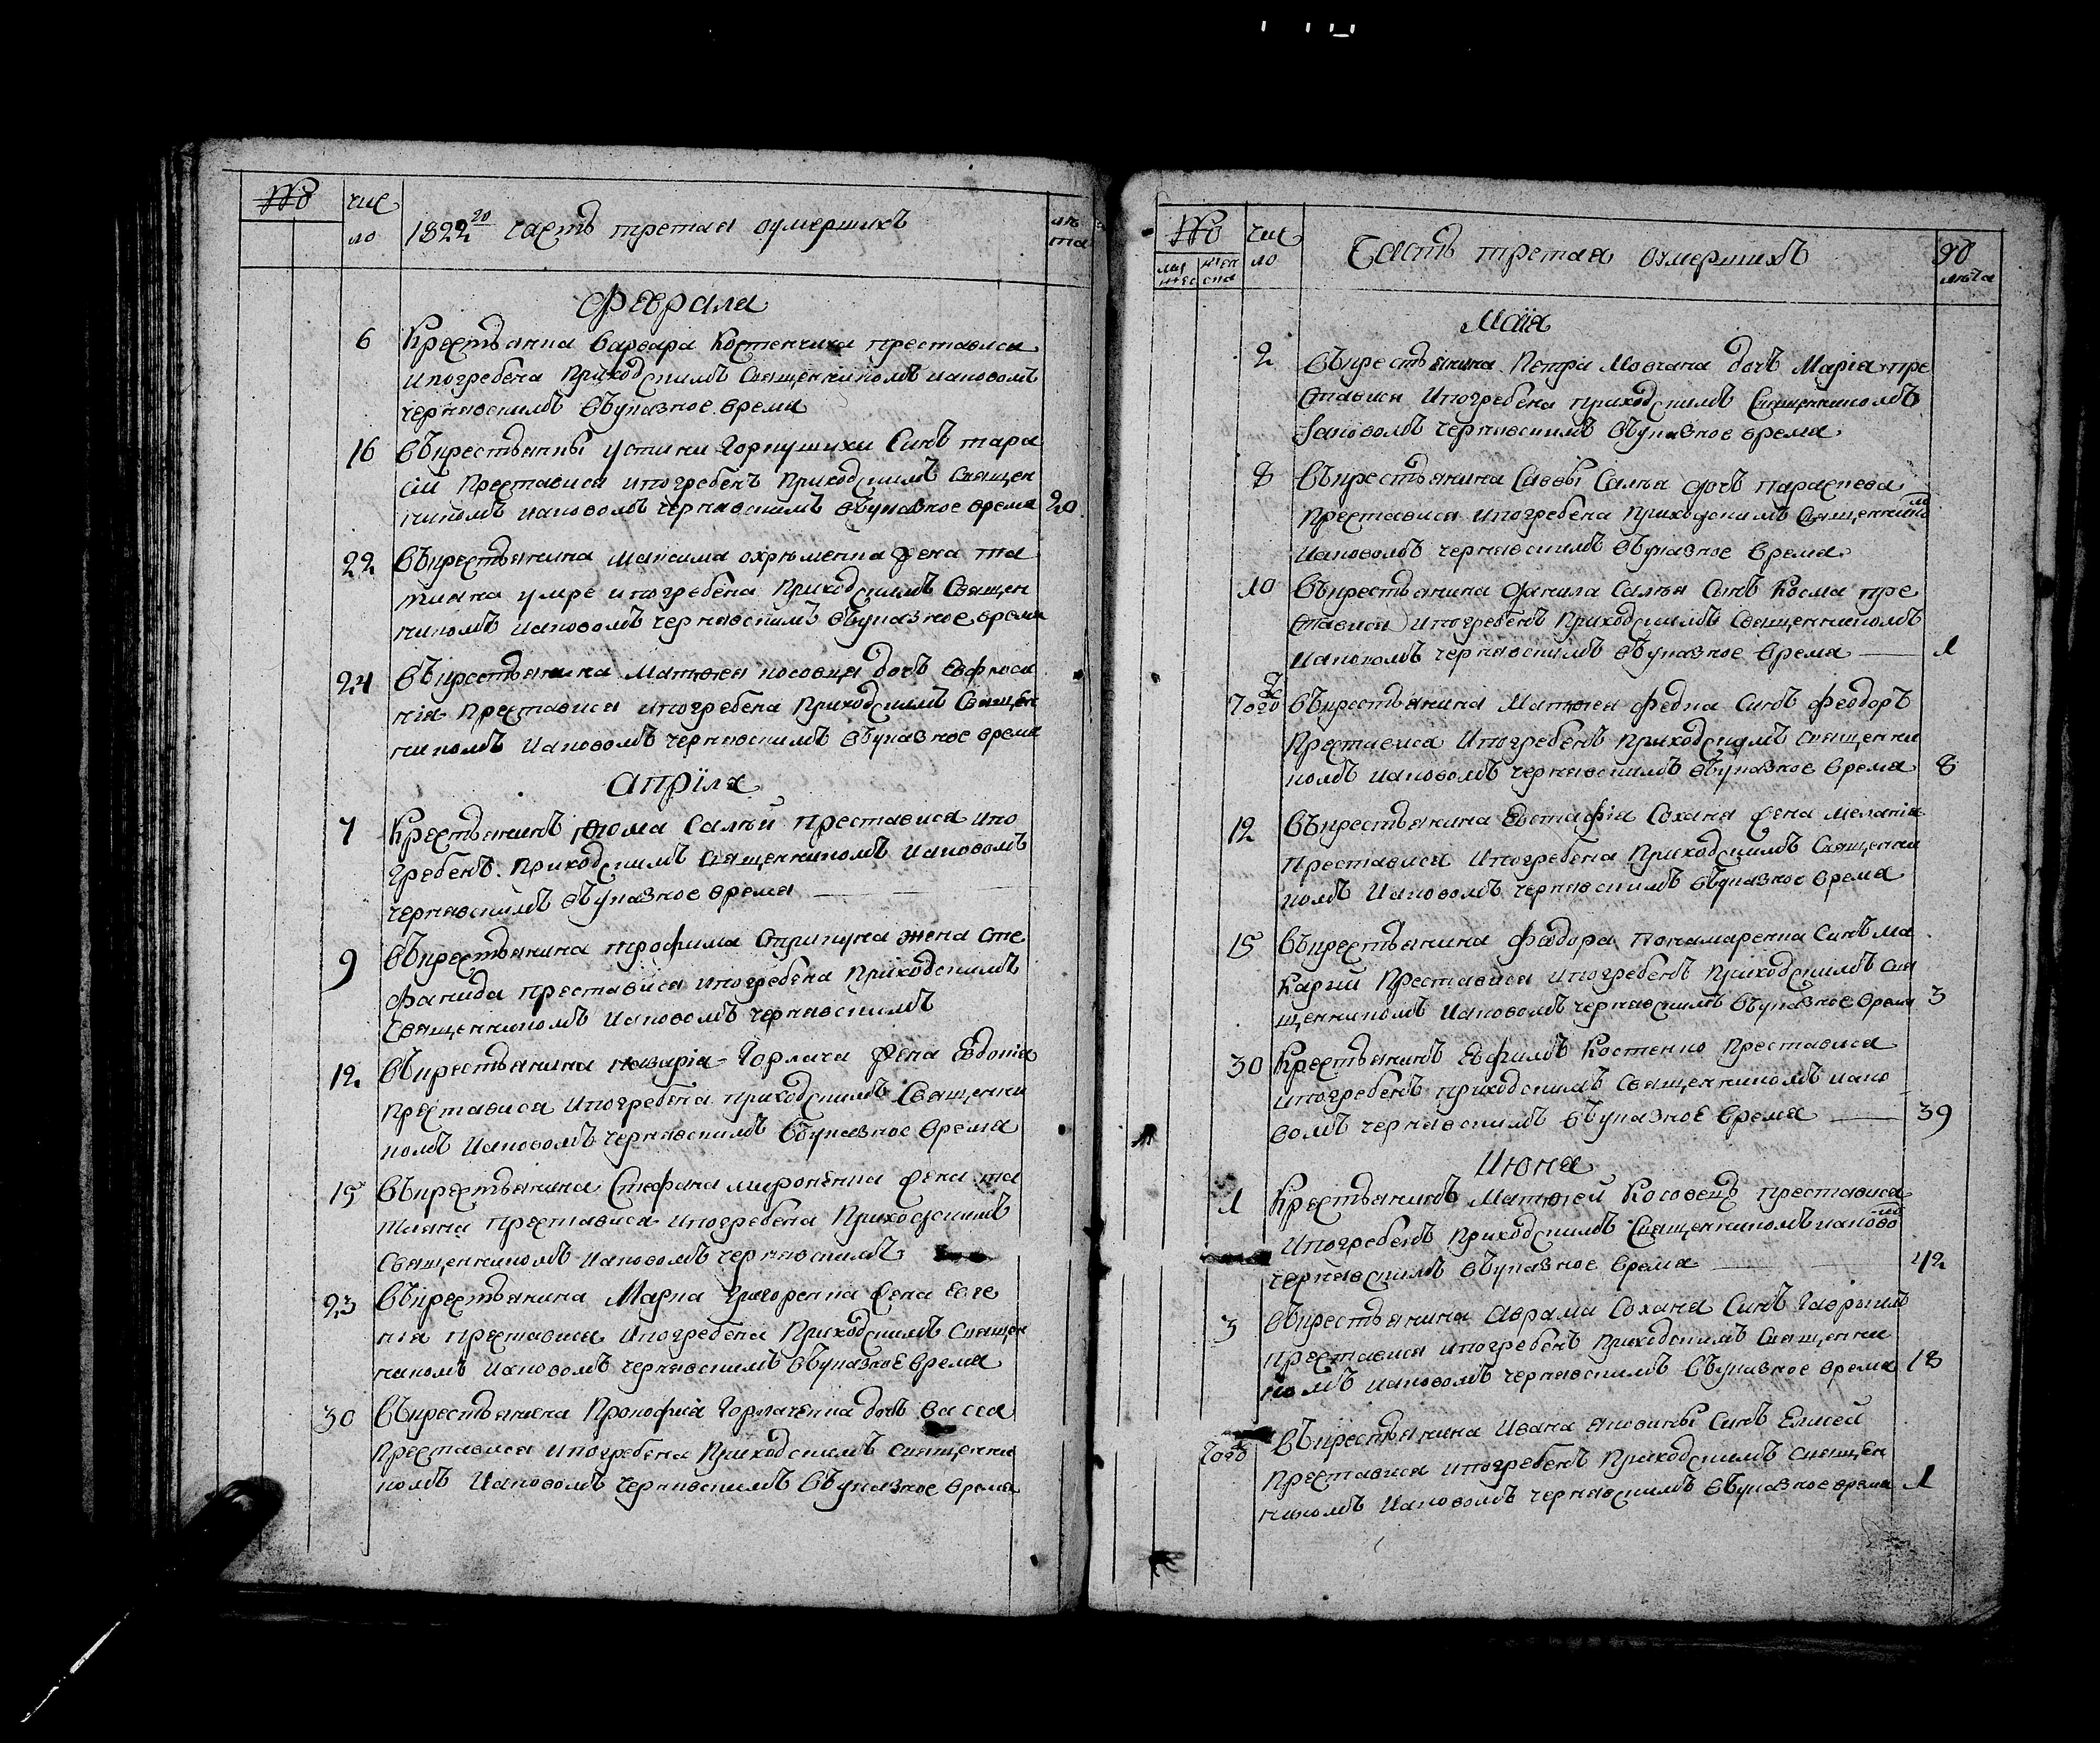 № чис
ло 1822го часть третая оумершихъ лѣ
та
Февраля
6 Крестьянка Варвара Костенчиха преставися
ипогребена приходскимъ Священникомъ Iаковомъ
чернявскимъ въуказное время
16 въкрестьянки устини Горпушихи Синъ тара
сій преставися ипогребенъ приходскимъ Священ
никомъ иаковомъ чернявскимъ въуказное время 20
22 въкрестьянина максима охрѣменка жена та
тиана умре ипогребена приходскимъ Священ
никомъ иаковомъ чернявскимъ въуказное время
24 въкрестьянина Матѳея косовця дочь Евфроси
нія преставися ипогребена приходскимъ Священ
никомъ иаковомъ чернявскимъ въуказное время
Апрїля
7 Крестьянинъ Ѳома Салѣй преставися ипо
гребенъ приходскимъ Священникомъ иаковомъ
чернявскимъ въуказное время
9 въкрестьянина трофима Стрикуна жена Сте
фанида преставися ипогребена приходскимъ
Священникомъ иаковомъ чернявскимъ
12 въкрестьянина назарія Горлача жена Евдокія
преставися ипогребена приходскимъ Священни
комъ иаковомъ чернявскимъ въуказное время
15 въкрестьянина Стефана мироненка жена та
тияна преставися ипогребена приходскимъ
Священникомъ иаковомъ чернявскимъ
23 въкрестьянина Марка григоренка жена Евге
нія преставися ипогребена приходскимъ Священ
никомъ иаковомъ чернявскимъ въуказное время
30 въкрестьянина Прокофія Горлаченка дочь васса
преставися ипогребена приходскимъ священни
комъ иаковомъ чернявскимъ въуказное время
№ чис
ло Часть третая оумершихъ лѣта
муж
ска женс
ка
Маїя
2 въкрестьянина Петра Мовчана дочь Марія пре
ставися ипогребена приходскимъ Священникомъ
Iаковомъ чернявскимъ въуказное время
8 въкрестьянина Саввы Салѣя дочь параскева
преставися ипогребена приходскимъ Священнико
мъ
иаковомъ чернявскимъ въуказное время
10 въкрестьянина данила Салѣя Синъ Косма пре
ставися ипогребенъ приходскимъ Священникомъ
иаковомъ чернявскимъ въуказное время 1
Тогож въкрестьянина Матѳея Федка Синъ Феодоръ
преставися ипогребенъ приходскимъ священни
комъ иаковомъ чернявскимъ въуказное время 8
12 въкрестьянина Евстафія Сохана жена меланія
преставися ипогребена приходскимъ Священни
комъ иаковомъ чернявскимъ въуказное время
15 въкрестьянина Федора Понамаренка Синъ ма
карий преставися ипогребенъ приходскимъ Свя
щенникомъ иаковомъ чернявскимъ въуказное время 3
30 Крестьянинъ Евфимъ Костенко преставися
ипогребенъ приходскимъ Священникомъ иако
вомъ чернявскимъ въуказное время 39
Июня
1 Крестьянинъ Матѳей Косовець преставися
ипогребенъ приходскимъ Священникомъ иаково
мъ
чернявскимъ въуказное время 42
3 въкрестьянина Аврама Сохана Синъ Гавриилъ
преставися ипогребенъ приходскимъ Священни
комъ иаковомъ чернявскимъ въуказное время 18
Тогож въкрестьянина Ивана яковины Синъ Елисей
преставися ипогребенъ приходскимъ священ
никомъ иаковомъ чернявскимъ въуказное время 1